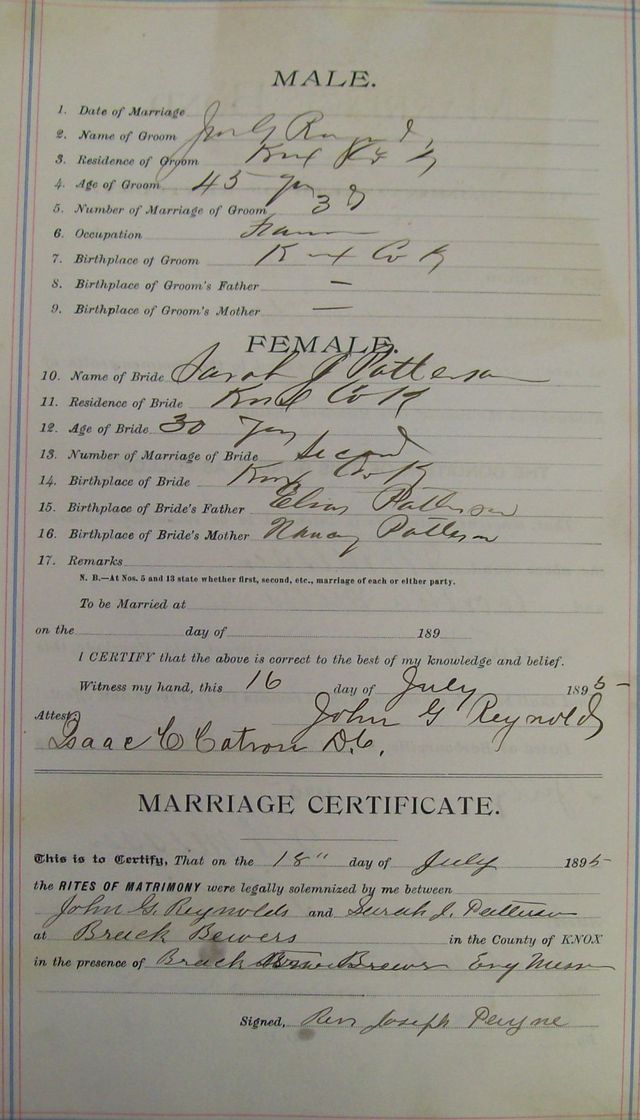 MALE.
1. Date of Marriage
2. Name of Groom Jno G
3. Residence of Groom Knox
4. Age of Groom 45 yrs
5. Number of Marriage of Groom 3d
6. Occupation Farmer
7. Birthplace of Groom Knox Co K
8. Birthplace of Groom's Father —
9. Birthplace of Groom's Mother —
FEMALE.
10. Name of Bride Sarah J Patterson
11. Residence of Bride Knox Co K
12. Age of Bride 30 yrs
13. Number of Marriage of Bride Second
14. Birthplace of Bride Knox Co K
15. Birthplace of Bride's Father Elias Patterson
16. Birthplace of Bride's Mother Nancy Patterson
17. Remarks
N. B.—At Nos. 5 and 13 state whether first, second, etc., marriage of each or either party.
To be Married at
on the day of 189
I CERTIFY that the above is correct to the best of my knowledge and belief.
Witness my hand, this 16 day of July 1895
Attest: John G Reynolds
Isaac C Catron D.C.
MARRIAGE CERTIFICATE.
This is to Certify, That on the 18" day of July 1895
the RITES OF MATRIMONY were legally solemnized by me between
John G. Reynolds and Sarah J. Patterson
at Brack Bewers in the County of KNOX
in the presence of Brack Brewer
Signed, Rev Joseph Payne